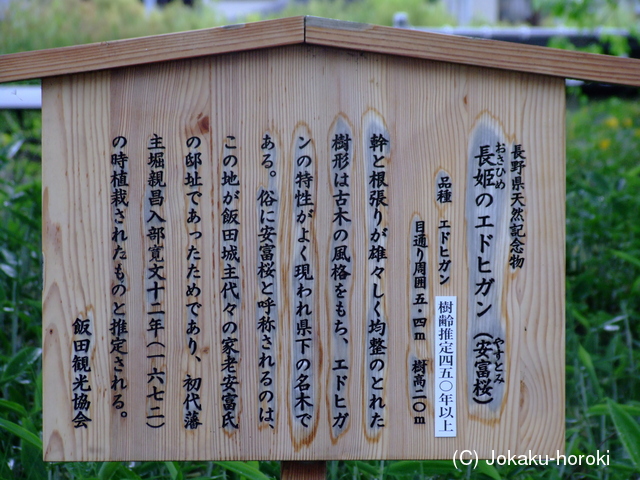 長野県天然記念物
おさひめ
長姫のエドヒガン（安富桜）
やすとみ
品種　エドヒガン
樹齢推定四五〇年以上
目通り周囲五・四m　樹高二〇m
幹と根張りが雄々しく均整のとれた
樹形は古木の風格をもち、エドヒガ
ンの特性がよく現われ県下の名木で
ある。俗に安富桜と呼称されるのは、
この地が飯田城主代々の家老安富氏
の邸址であったためであり、初代藩
主堀親昌入部寛文十二年（一六七二）
の時植栽されたものと推定される。
飯田観光協会
(C) Jokaku-horoki